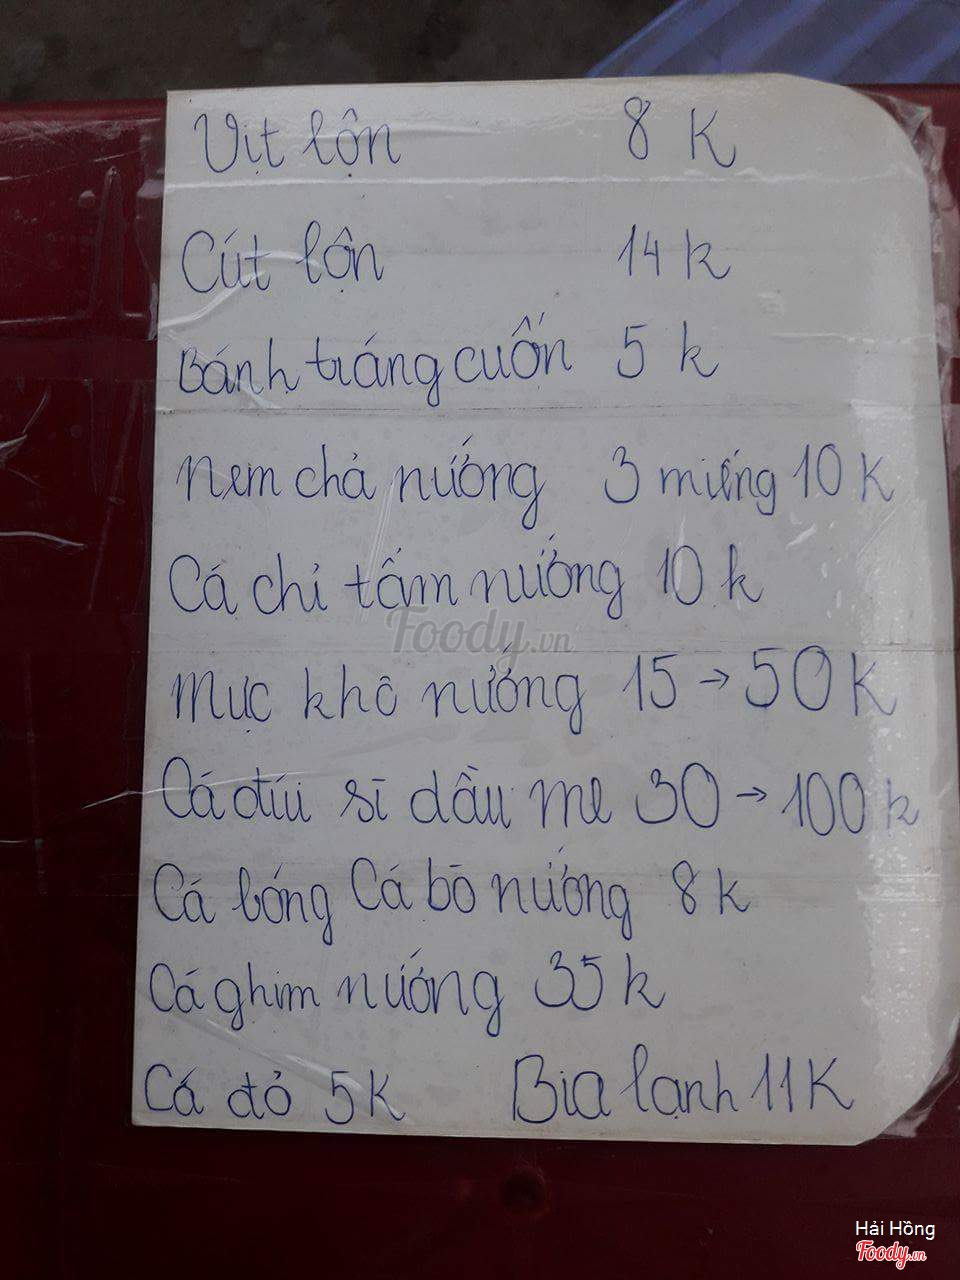 Vịt lộn 8 K
Cút lộn 14 k
Bánh tráng cuốn 5 k
Nem chả nướng 3 miếng 10 K
Cá chỉ tẩm nướng 10 k
Foody.vn
Mực khô nướng 15 → 50 K
Cá đúi sī dầu me 30 → 100 k
Cá bóng Cá bò nướng 8 k
Cá ghim nướng 35 k
Cá đỏ 5 K Bia lạnh 11 K
Hải Hồng
Foody.vn